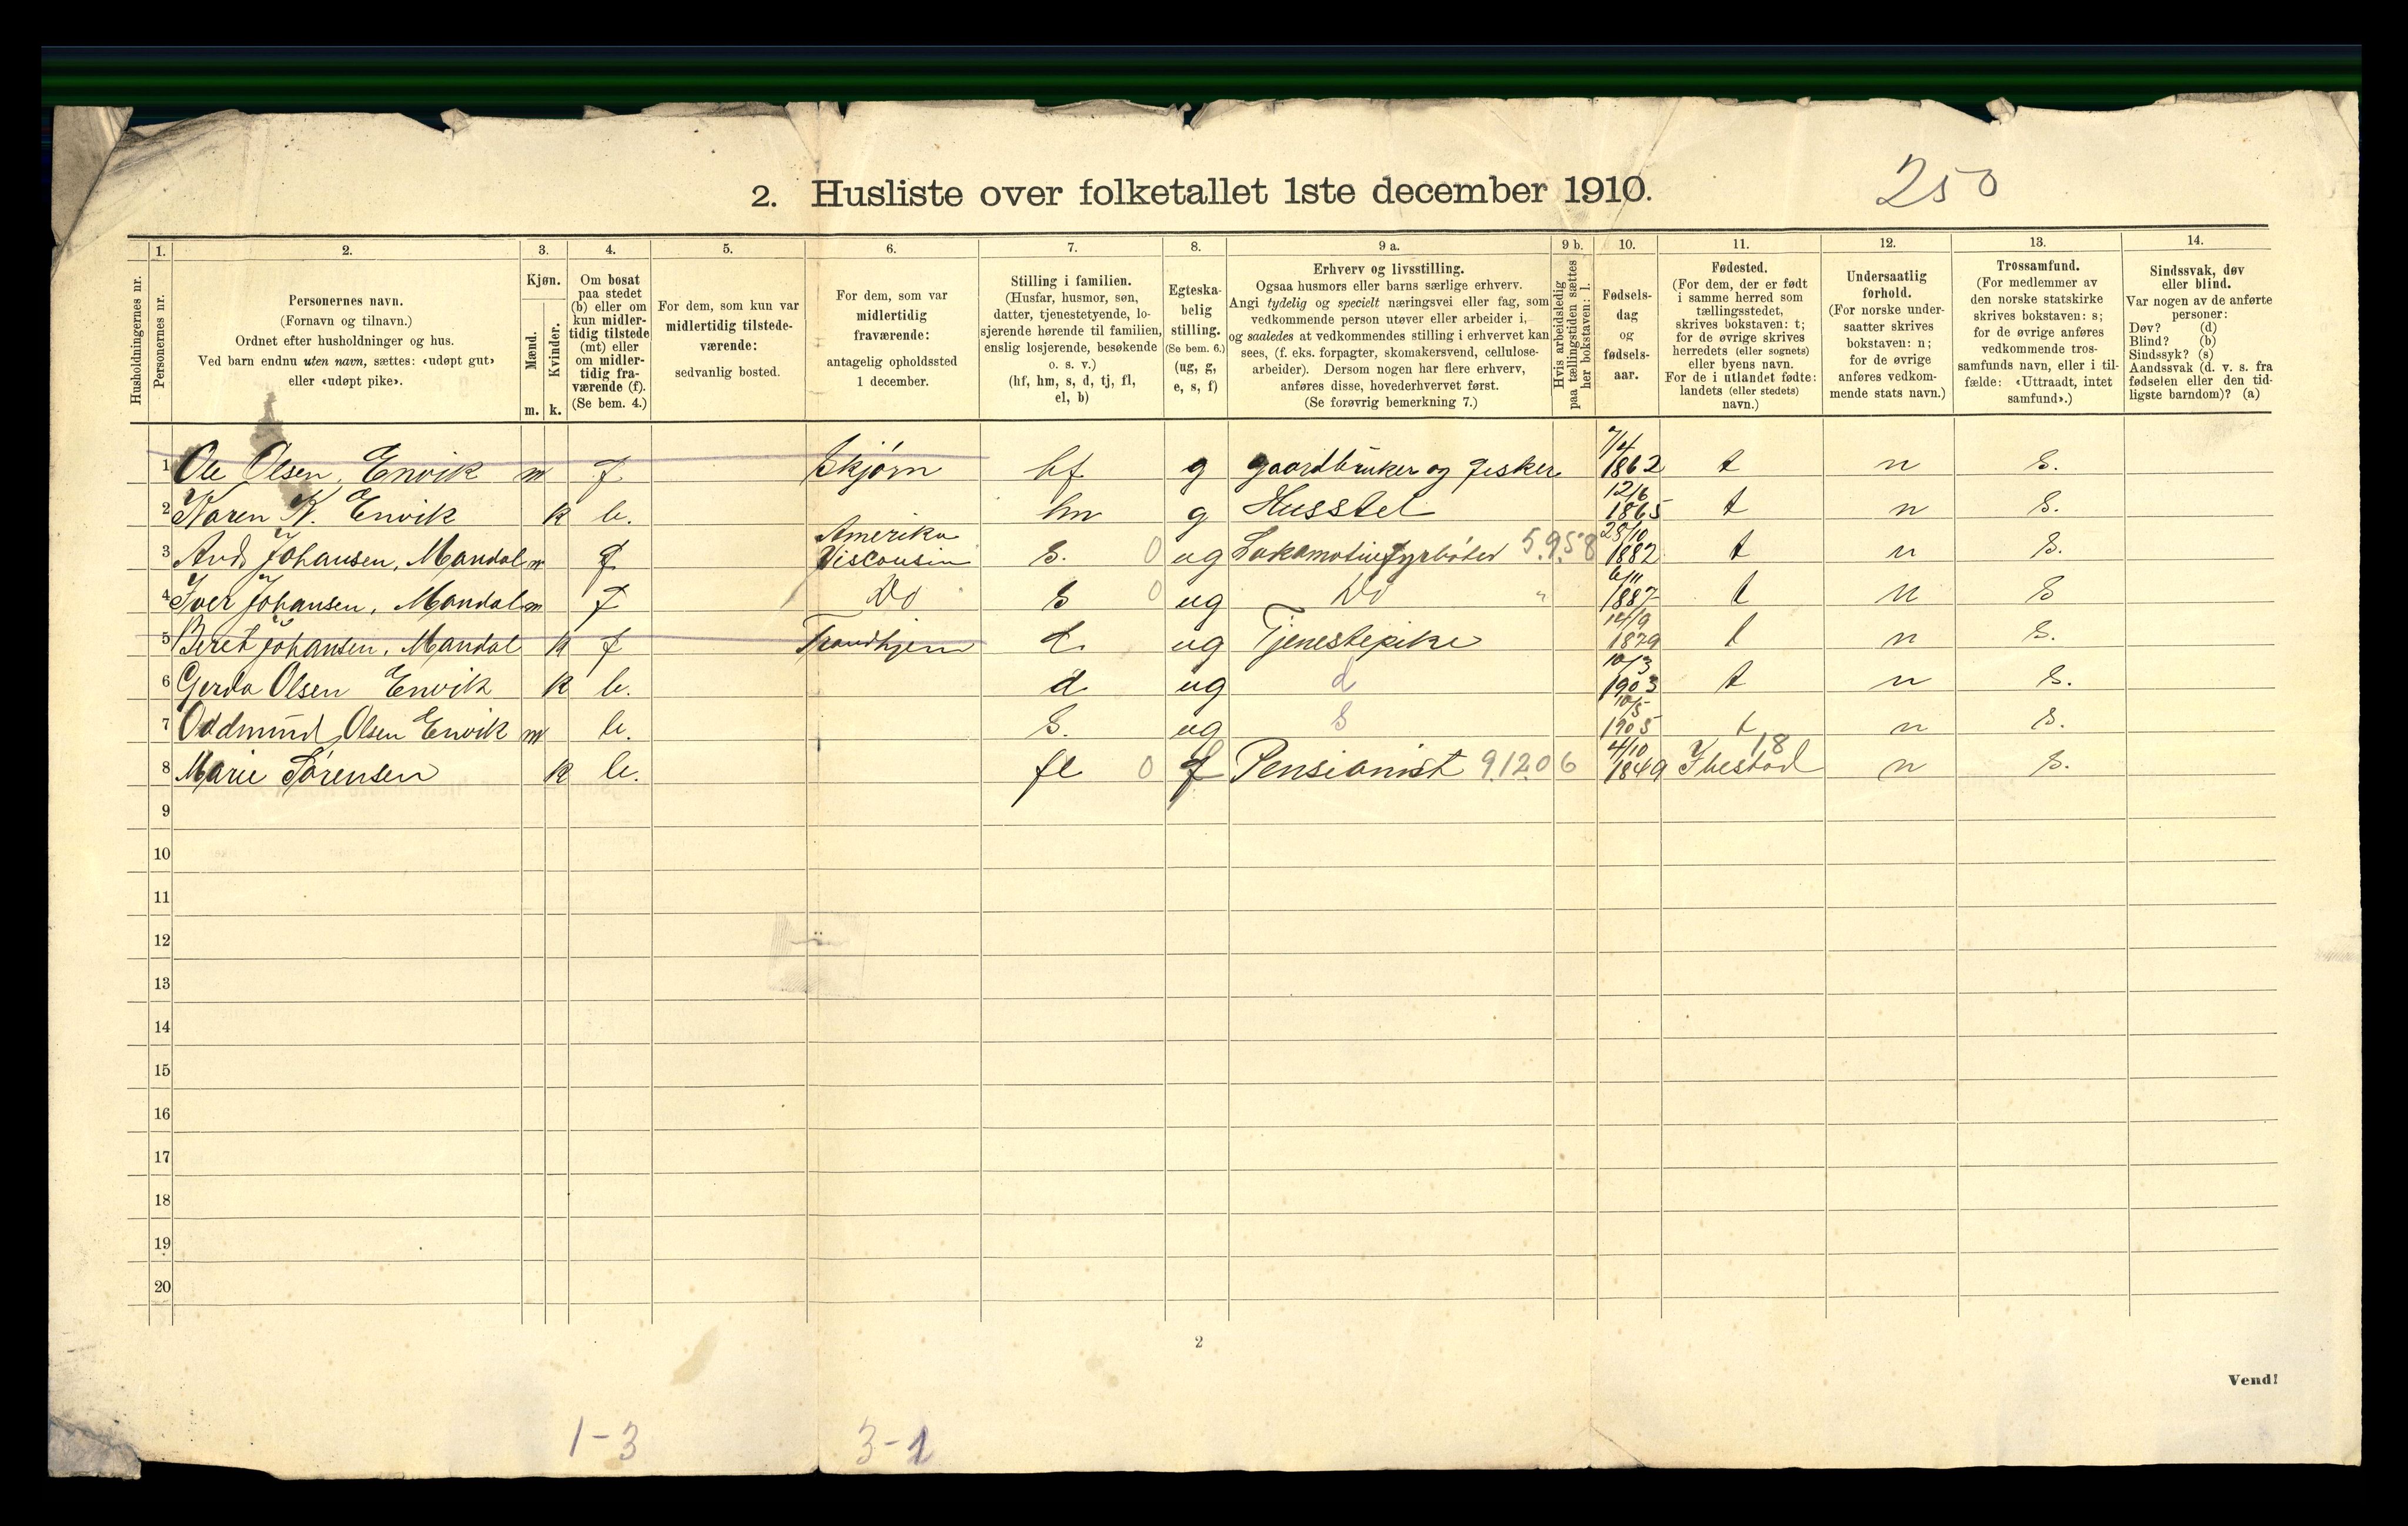 2. Husliste over folketallet 1ste december 1910. 250
Husholdningernes nr.
1. Personernes nr.
2. Personernes navn.
(Fornavn og tilnavn.)
Ordnet efter husholdninger og hus.
Ved barn endnu uten navn, sættes: «udøpt gut»
eller «udøpt pike».
3. Kjøn.
Mænd. Kvinder.
m. k.
4. Om bosat
paa stedet
(b) eller om
kun midler-
tidig tilstede
(mt) eller
om midler-
tidig fra-
værende (f).
(Se bem. 4.)
5. For dem, som kun var
midlertidig tilstede-
værende:
sedvanlig bosted.
6. For dem, som var
midlertidig
fraværende:
antagelig opholdssted
1 december.
7. Stilling i familien.
(Husfar, husmor, søn,
datter, tjenestetyende, lo-
sjerende hørende til familien,
enslig losjerende, besøkende
o. s. v.)
(hf, hm, s, d, tj, fl,
el, b)
8. Egteska-
belig
stilling.
(Se bem. 6.)
(ug, g,
e, s, f)
9 a. Erhverv og livsstilling.
Ogsaa husmors eller barns særlige erhverv.
Angi tydelig og specielt næringsvei eller fag, som
vedkommende person utøver eller arbeider i,
og saaledes at vedkommendes stilling i erhvervet kan
sees, (f. eks. forpagter, skomakersvend, cellulose-
arbeider). Dersom nogen har flere erhverv,
anføres disse, hovederhvervet først.
(Se forøvrig bemerkning 7.)
9 b. Hvis arbeidsledig
paa tællingstiden sættes
her bokstaven: l.
10. Fødsels-
dag
og
fødsels-
aar.
11. Fødested.
(For dem, der er født
i samme herred som
tællingsstedet,
skrives bokstaven: t;
for de øvrige skrives
herredets (eller sognets)
eller byens navn.
For de i utlandet fødte:
landets (eller stedets)
navn.)
12. Undersaatlig
forhold.
(For norske under-
saatter skrives
bokstaven: n;
for de øvrige
anføres vedkom-
mende stats navn.)
13. Trossamfund.
(For medlemmer av
den norske statskirke
skrives bokstaven: s;
for de øvrige anføres
vedkommende tros-
samfunds navn, eller i til-
fælde: «Uttraadt, intet
samfund».)
14. Sindssvak, døv
eller blind.
Var nogen av de anførte
personer:
Døv? (d)
Blind? (b)
Sindssyk? (s)
Aandssvak (d. v. s. fra
fødselen eller den tid-
ligste barndom)? (a)
1 Ole Olsen, Envik m f Skjørn hf g gaardbruker og fisker 7/4 1862 t n s.
2 Karen K. Envik k b. hm g Husstel 12/6 1865 t n s.
3 Johansen, Mandal m f Amerika Viscousin s. 0 ug Lokamotivfyrbøter 5.9.58 23/10 1882 t n s.
4 Iver Johansen, Mandal m f Do s 0 ug Do " 6/11 1887 t n s
5 Beret Johansen, Mandal k f Trondhjem d. ug Tjenestepike 14/9 1879 t n s.
6 Gerda Olsen Envik k b. d ug d 10/3 1903 t n s.
7 Oddmund Olsen Envik m b. s. ug s 10/5 1905 t n s.
8 Marie Sørensen k b. fl 0 f Pensionist 9.120 6 4/10 1849 Ibestad 18 n s.
9
10
11
12
13
14
15
16
17
18
19
20
2
Vend!
1-3 3-1